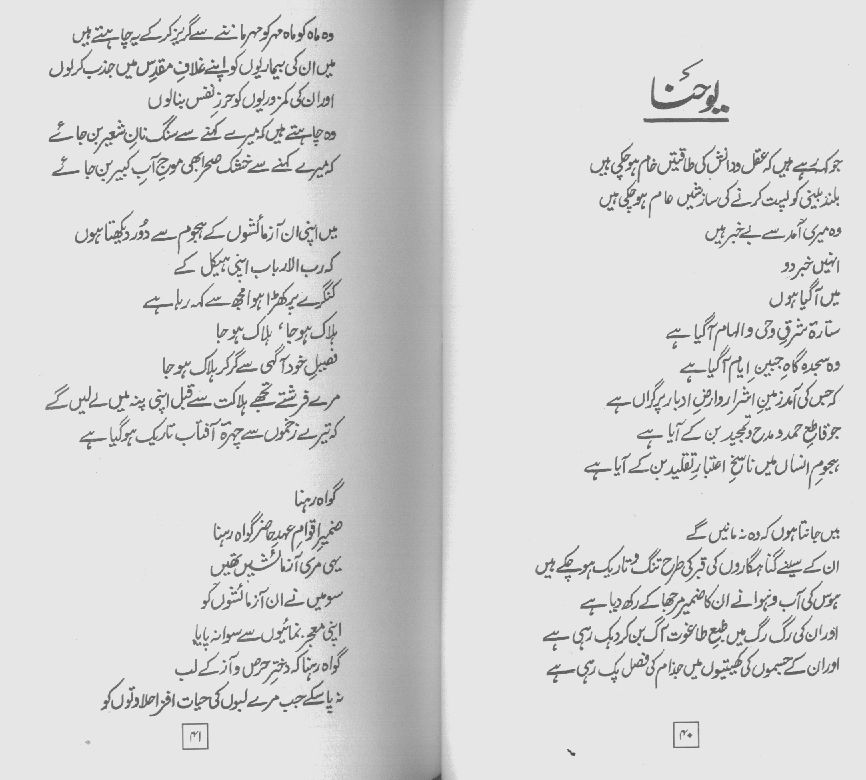 یوحنا
جو کہہ رہے ہیں کہ عقل و دانش کی طاقتیں خام ہو چکی ہیں
بلند بینی کو پست کرنے کی سازشیں عام ہو چکی ہیں
وہ میری آمد سے بے خبر ہیں
انہیں خبر دو
میں آگیا ہوں
ستارۂ شرقِ وحی و الہام آگیا ہے
وہ سجدہ گاہِ جبینِ ایام آگیا ہے
کہ جس کی آمد زمینِ اشرار و ارضِ ادبار پر گراں ہے
جو قاطعِ حمد و مدح و تمجید بن کے آیا ہے
ہجومِ انساں میں ناسخِ اعتبارِ تقلید بن کے آیا ہے
میں جانتا ہوں کہ وہ نہ مانیں گے
ان کے سینے گناہگاروں کی قبر کی طرح تنگ و تاریک ہو چکے ہیں
ہوس کی آب و ہوا نے ان کا ضمیر مرجھا کے رکھ دیا ہے
اور ان کی رگ رگ میں طبعِ طاغوت آگ بن کر دہک رہی ہے
اور ان کے جسموں کی کھیتیوں میں جذام کی فصل پک رہی ہے
۴۰
وہ ماہ کو ماہ مہر کو مہر ماننے سے گریز کر کے یہ چاہتے ہیں
میں ان کی بیماریوں کو اپنے غلافِ مقدس میں جذب کر لوں
اور ان کی کمزوریوں کو حرزِ نفس بنا لوں
وہ چاہتے ہیں کہ میرے کہنے سے سنگ نانِ شعیر بن جائے
کہ میرے کہنے سے خشک صحرا بھی موجِ آبِ کبیر بن جائے
میں اپنی ان آزمائشوں کے ہجوم سے دُور دیکھتا ہوں
کہ رب الارباب اپنی ہیکل کے
کنگرے پر کھڑا ہوا مجھ سے کہہ رہا ہے
ہلاک ہو جا، ہلاک ہو جا
فصیلِ خود آگہی سے گر کر ہلاک ہو جا
مرے فرشتے تجھے ہلاکت سے قبل اپنی پنہ میں لے لیں گے
کہ تیرے زخموں سے چہرۂ آفتاب تاریک ہو گیا ہے
گواہ رہنا
ضمیرِ اقوامِ عہدِ حاضر گواہ رہنا
یہی مری آزمائشیں تھیں
سو میں نے ان آزمائشوں کو
اپنی معجز نمائیوں سے سوا نہ پایا
گواہ رہنا کہ دخترِ حرص و آز کے لب
نہ پا سکے جب مرے لبوں کی حیات افزا حلاوتوں کو
۴۱